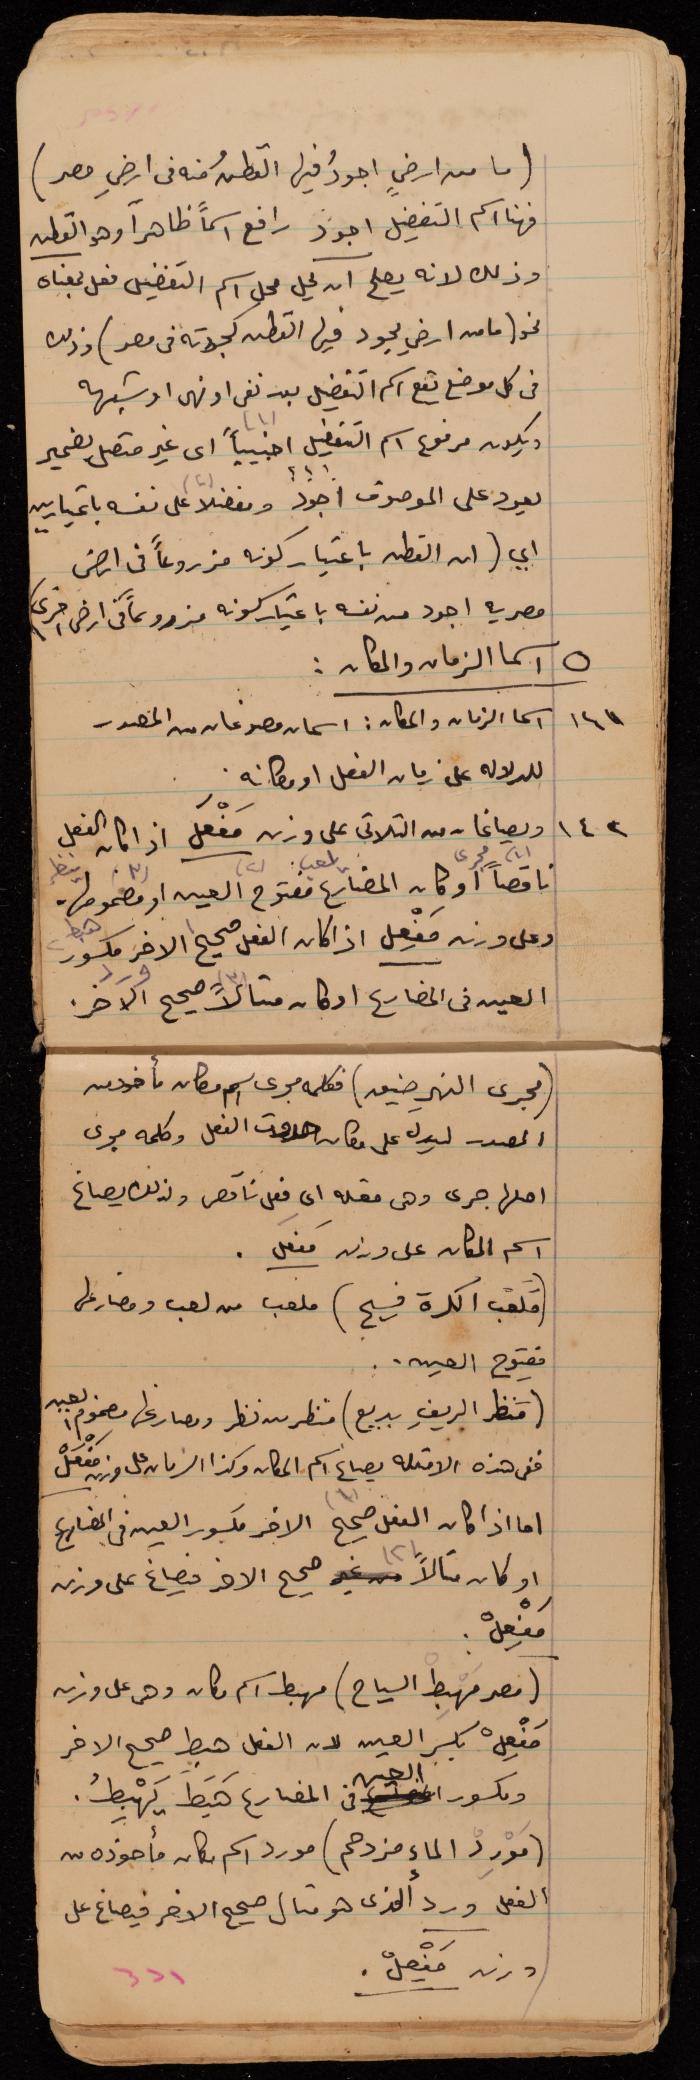 (ما من ارضٍ اجودُ فيها القطنُ منه فى ارضِ مصر)
فهنا اسم التفضيل اجودُ رافع اسماً ظاهراً وهو القطن
وذلك لانه يصلح ان يحل محل اسم التفضيل فعل بمعناه
نحو (ما من ارضٍ يجود فيها القطن كجودته فى مصر) وذلك
فى كل موضع يقع اسم التفضيل بعد نفى او نهى او شبهه
ويكون مرفوع اسم التفضيل (١) اجنبياً اى غير متصل بضمير
يعود على الموصوف أجودُ ومفضلاً (٢) على نفسه باعتبارين
اي (ان القطن باعتبار كونه مزروعاً فى ارض
مصريه اجود من نفسه باعتبار كونه مزروعاً فى ارض اخرى)
٥ اسما الزمان والمكان :
١٤١ اسما الزمان والمكان : اسمان مصوغان من المصدر
للدلاله على زمان الفعل او مكانه .
١٤٢ ويصاغان من الثلاثى على وزن مَفْعَل اذا كان الفعل
(١) مجرى (٢) يلعب (٣) ينظر
ناقصاً أو كان المضارع مفتوح العين او مضمومها .
وعلى وزن مَفْعِل اذا كان الفعل صحيح الاخر مكسور
هبط
ورد
العين فى المضارع او كان مثالاً (٢) صحيح الاخر .
(مجرى النهرِ ضيق) فكلمه مجرى اسم مكان مأخوذ من
المصدر ليدل على مكان حدوث الفعل وكلمه مجرى
اصلها جرى وهى معتله اى فعل ناقص ولذلك يصاغ
اسم المكان على وزن مَفعَل .
(مَلعَب الكرة فسيح) ملعب من لعب ومضارعها
مفتوح العين . .
(مَنظر الريفِ بديع) منظر من نظر ومضارعها مضموم العين
ففى هذه الامثله يصاغ اسم المكان وكذا الزمان على وزن مَفْعَلْ
اما اذا كان الفعل صحيح (١) الاخر مكسور العين فى المضارع
او كان مثالاً (٢) صحيح الاخر فيصاغ على وزن
مَفْعِلْ .
(مصر مَهْبِطْ السياح) مهبط اسم مكان وهى على وزن
مَفْعِلْ بكسر العين لان الفعل هبط صحيح الاخر
ومكسور العين فى المضارع هَبَطَ يَهْبِطُ .
(مَوْرِدْ الماءِ مزدحم) مورد اسم مكان مأخوذه من
الفعل وردَ ألذى هو مثال صحيح الاخر فيصاغ على
وزن مَفْعِلْ .